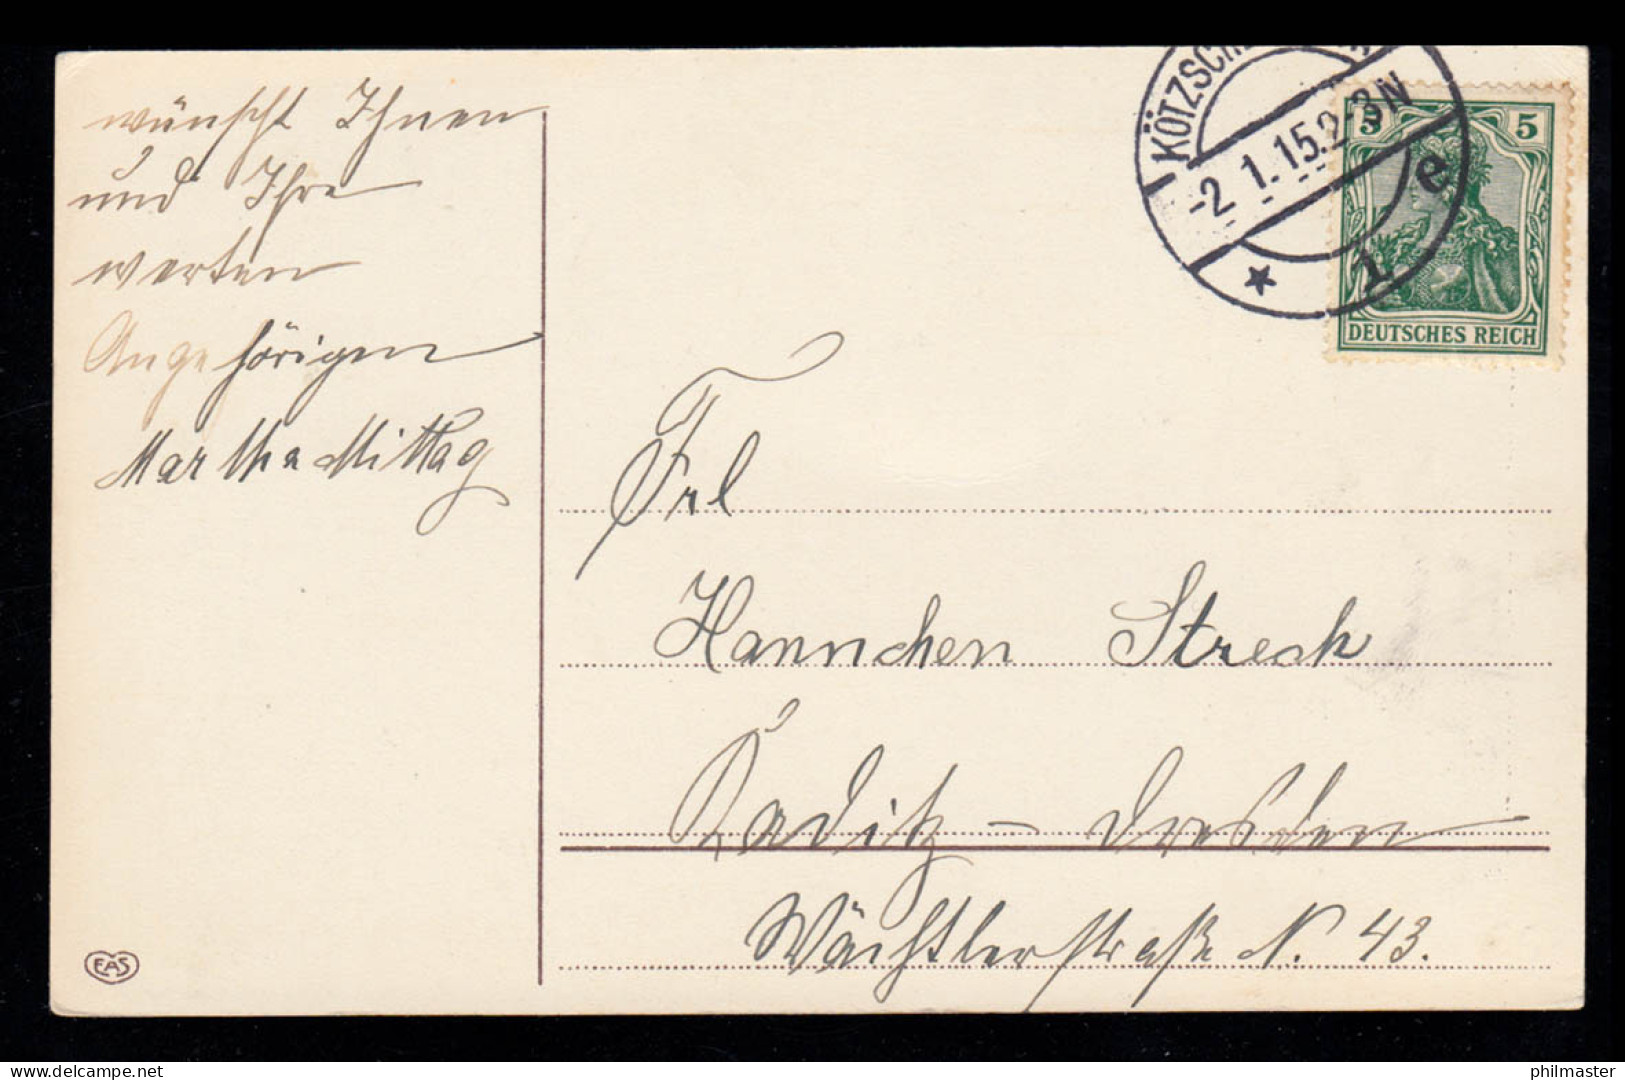 wünscht Ihnen
und Ihre
werten
Angehörigen
Martha Mittag
EAS
KÖTZSCH
-2.1.15.2-3N
* i e
5 5
DEUTSCHES REICH
Frl
Hannchen Streck
Kaditz – Dresden
Wächtlerstraße N. 43.
delcampe.net
philmaster